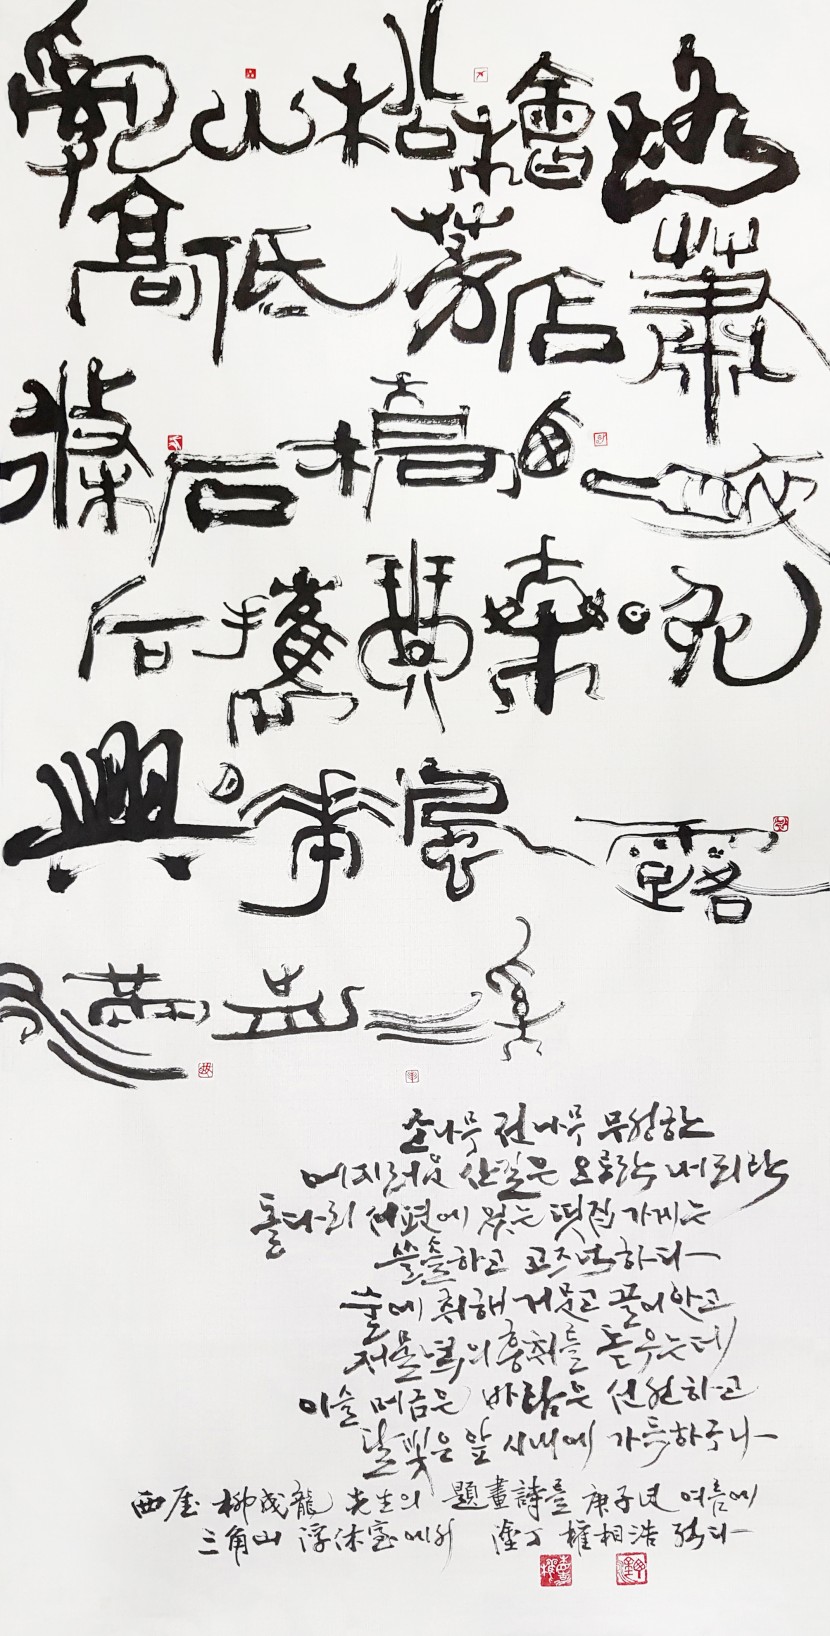 亂山松檜路
高低茅店蕭
條石橋西醉
后攜琴乘晚
興風露
滿
소나무 전나무 무성한
어지러운 산길은 오르락 내리락
돌다리 서편에 있는 띳집 가게는
쓸쓸하고 고즈넉하다
술에 취해 거문고 끌어안고
저물녘의 흥취를 돋우는데
이슬 머금은 바람은 선선하고
달빛은 앞 시내에 가득하구나
西厓 柳成龍 先生의 題畫詩를 庚子년 여름에
三角山 浮休室에서 塗丁 權相浩 적다